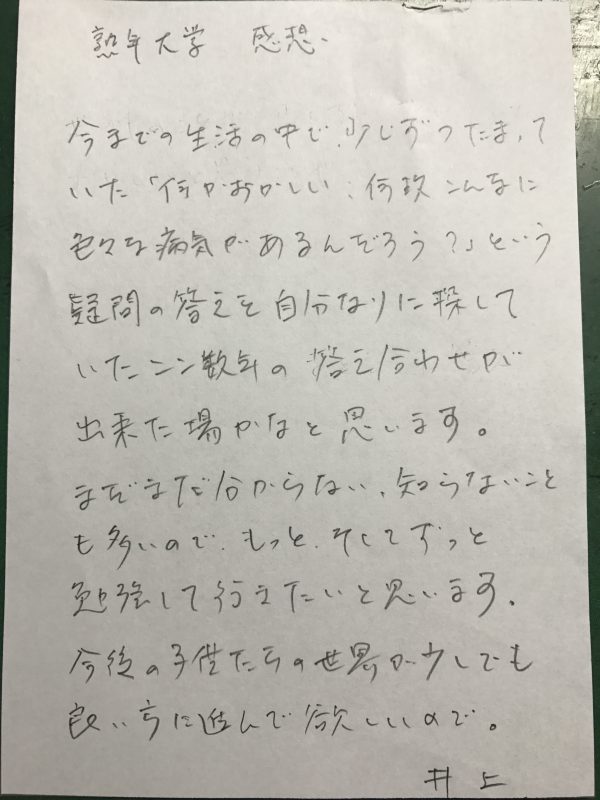 熟年大学 感想、
今までの生活の中で、少しずつたまって
いた「何かおかしい、何故こんなに
色々な病気があるんだろう?」という
疑問の答えを自分なりに探して
いたここ数年の答え合わせが
出来た場かなと思います。
まだまだ分からない、知らないこと
も多いので、もっと、そしてずっと
勉強して行きたいと思います。
今後の子供たちの世界が少しでも
良い方に進んで欲しいので。
井上